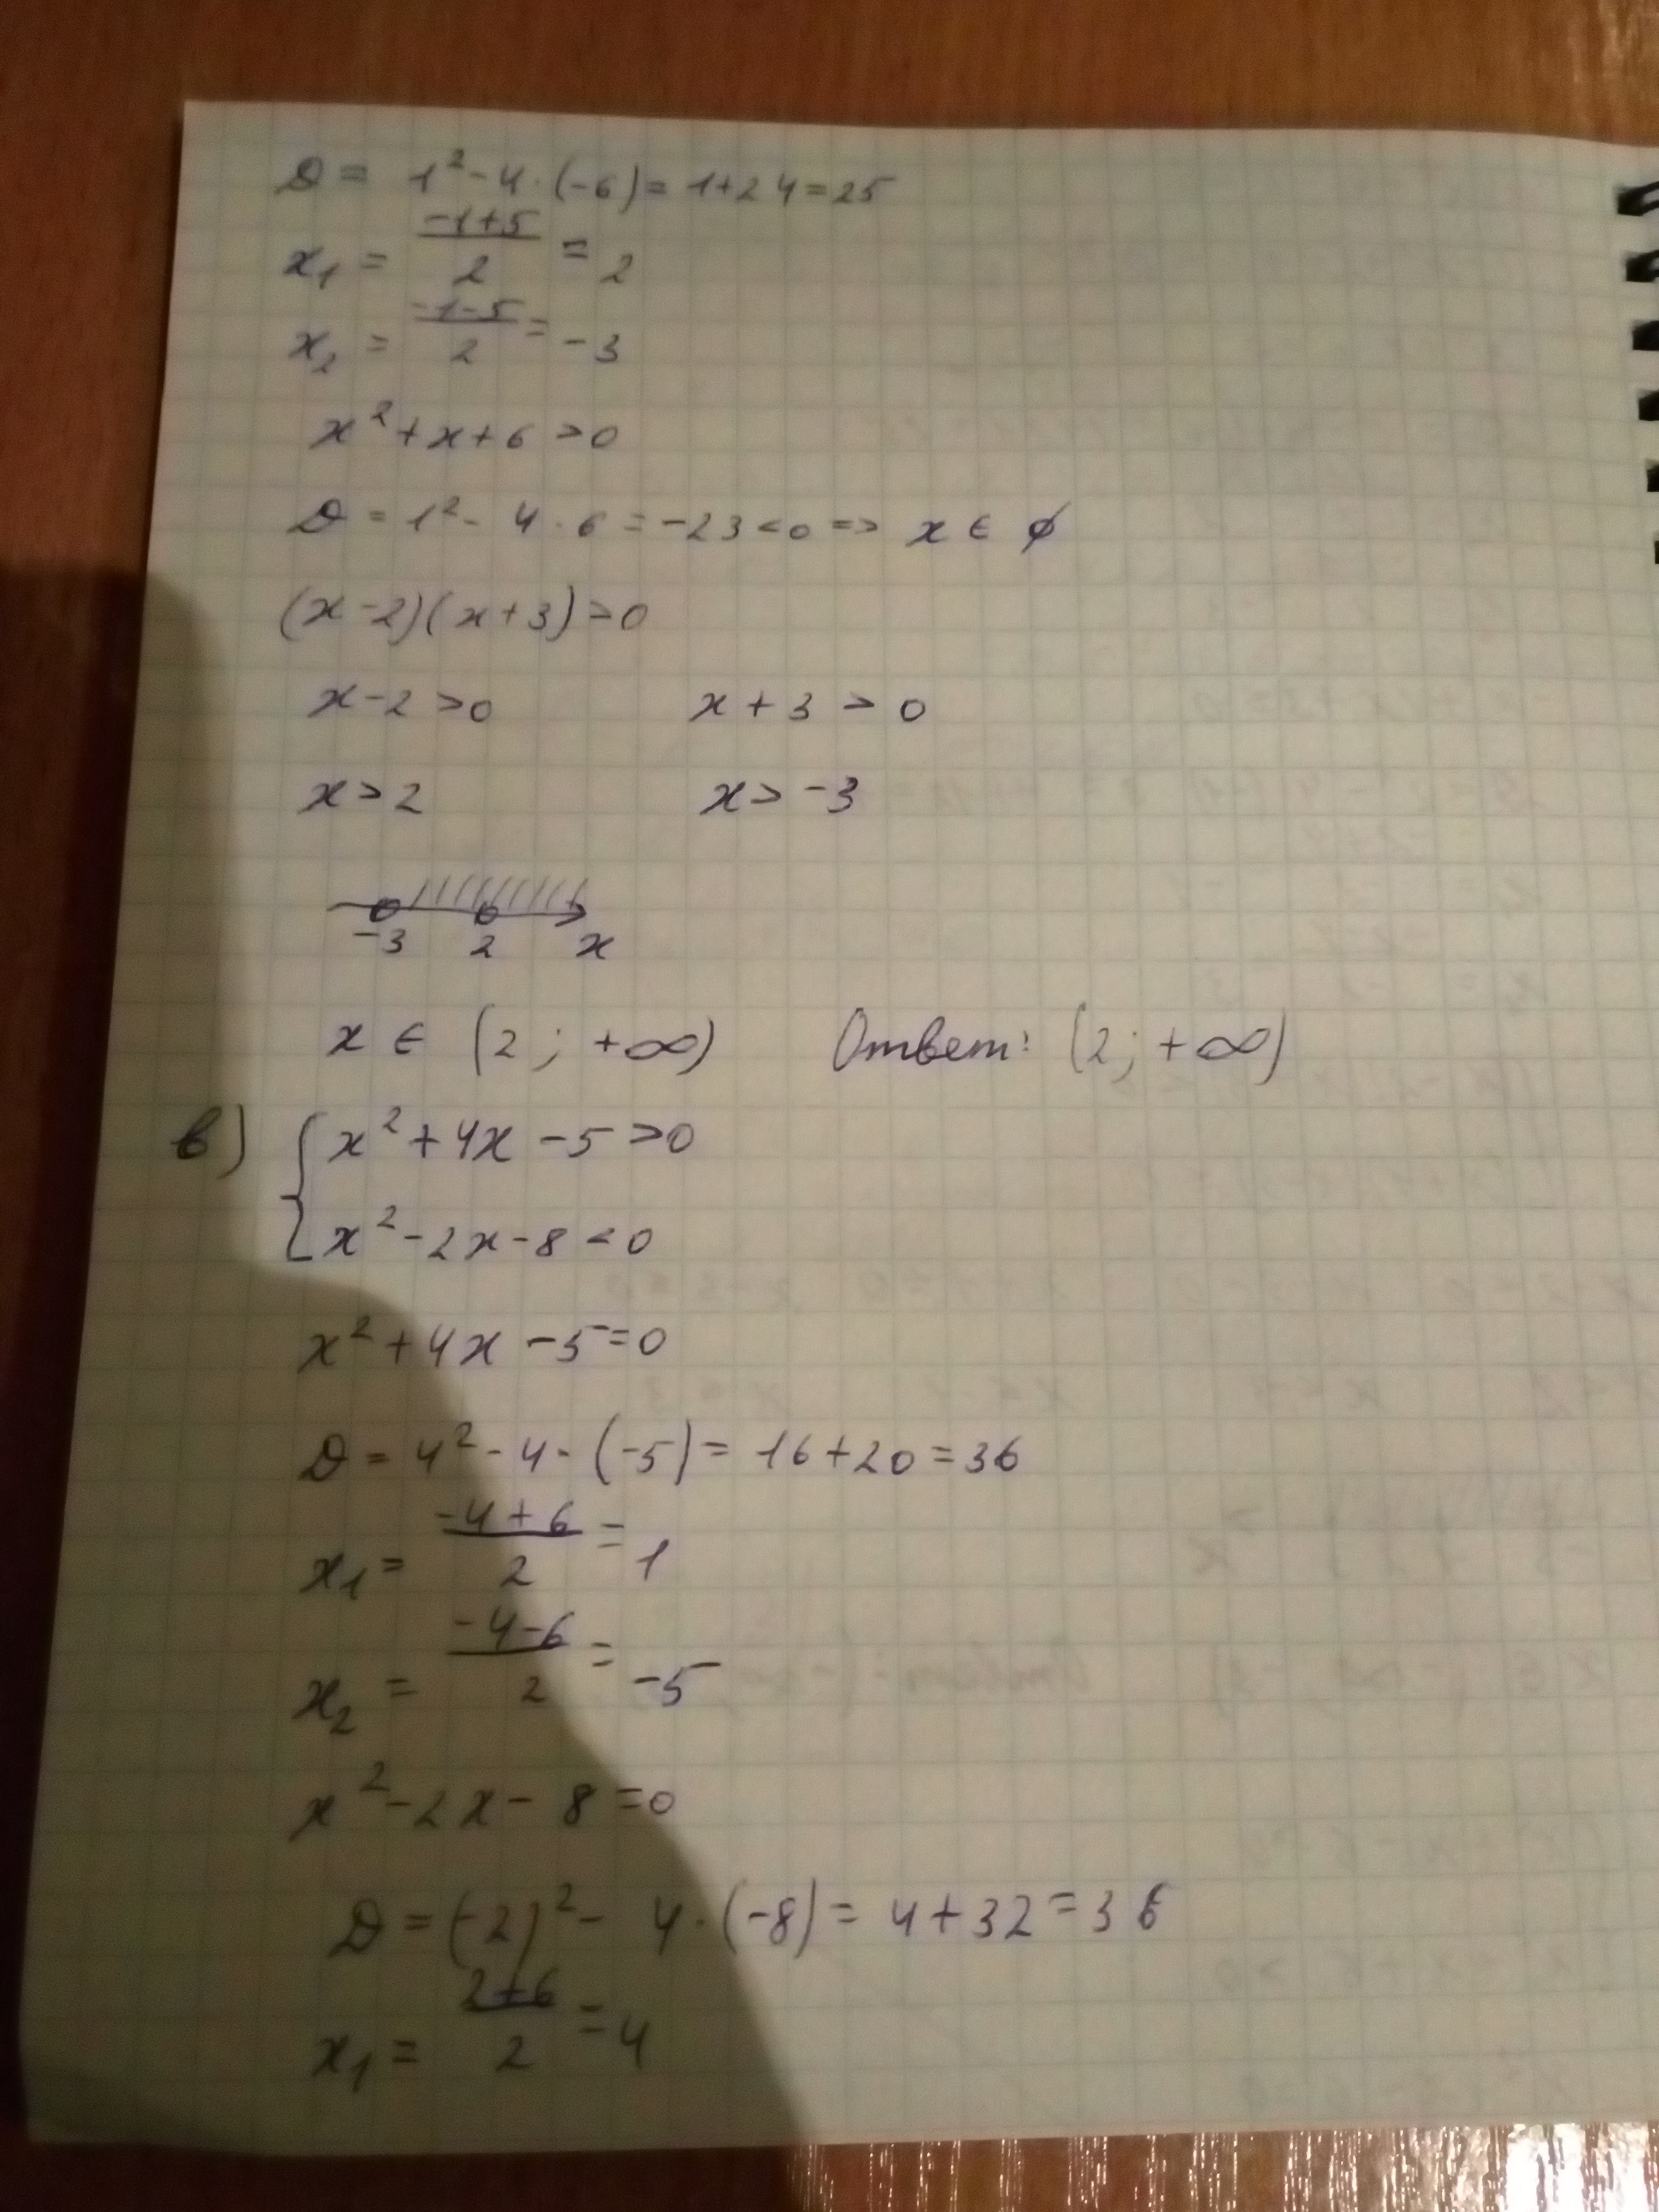 D = 1² - 4 · (-6) = 1 + 24 = 25
x₁ = (-1+5)/2 = 2
x₂ = (-1-5)/2 = -3
x² + x + 6 > 0
D = 1² - 4 · 6 = -23 < 0 => x ∈ ∅
(x - 2)(x + 3) > 0
x - 2 > 0   x + 3 > 0
x > 2   x > -3
-3 2 x
x ∈ (2; +∞)   Ответ: (2; +∞)
в) { x² + 4x - 5 > 0
x² - 2x - 8 < 0
x² + 4x - 5 = 0
D = 4² - 4 · (-5) = 16 + 20 = 36
x₁ = (-4+6)/2 = 1
x₂ = (-4-6)/2 = -5
x² - 2x - 8 = 0
D = (-2)² - 4 · (-8) = 4 + 32 = 36
x₁ = (2+6)/2 = 4